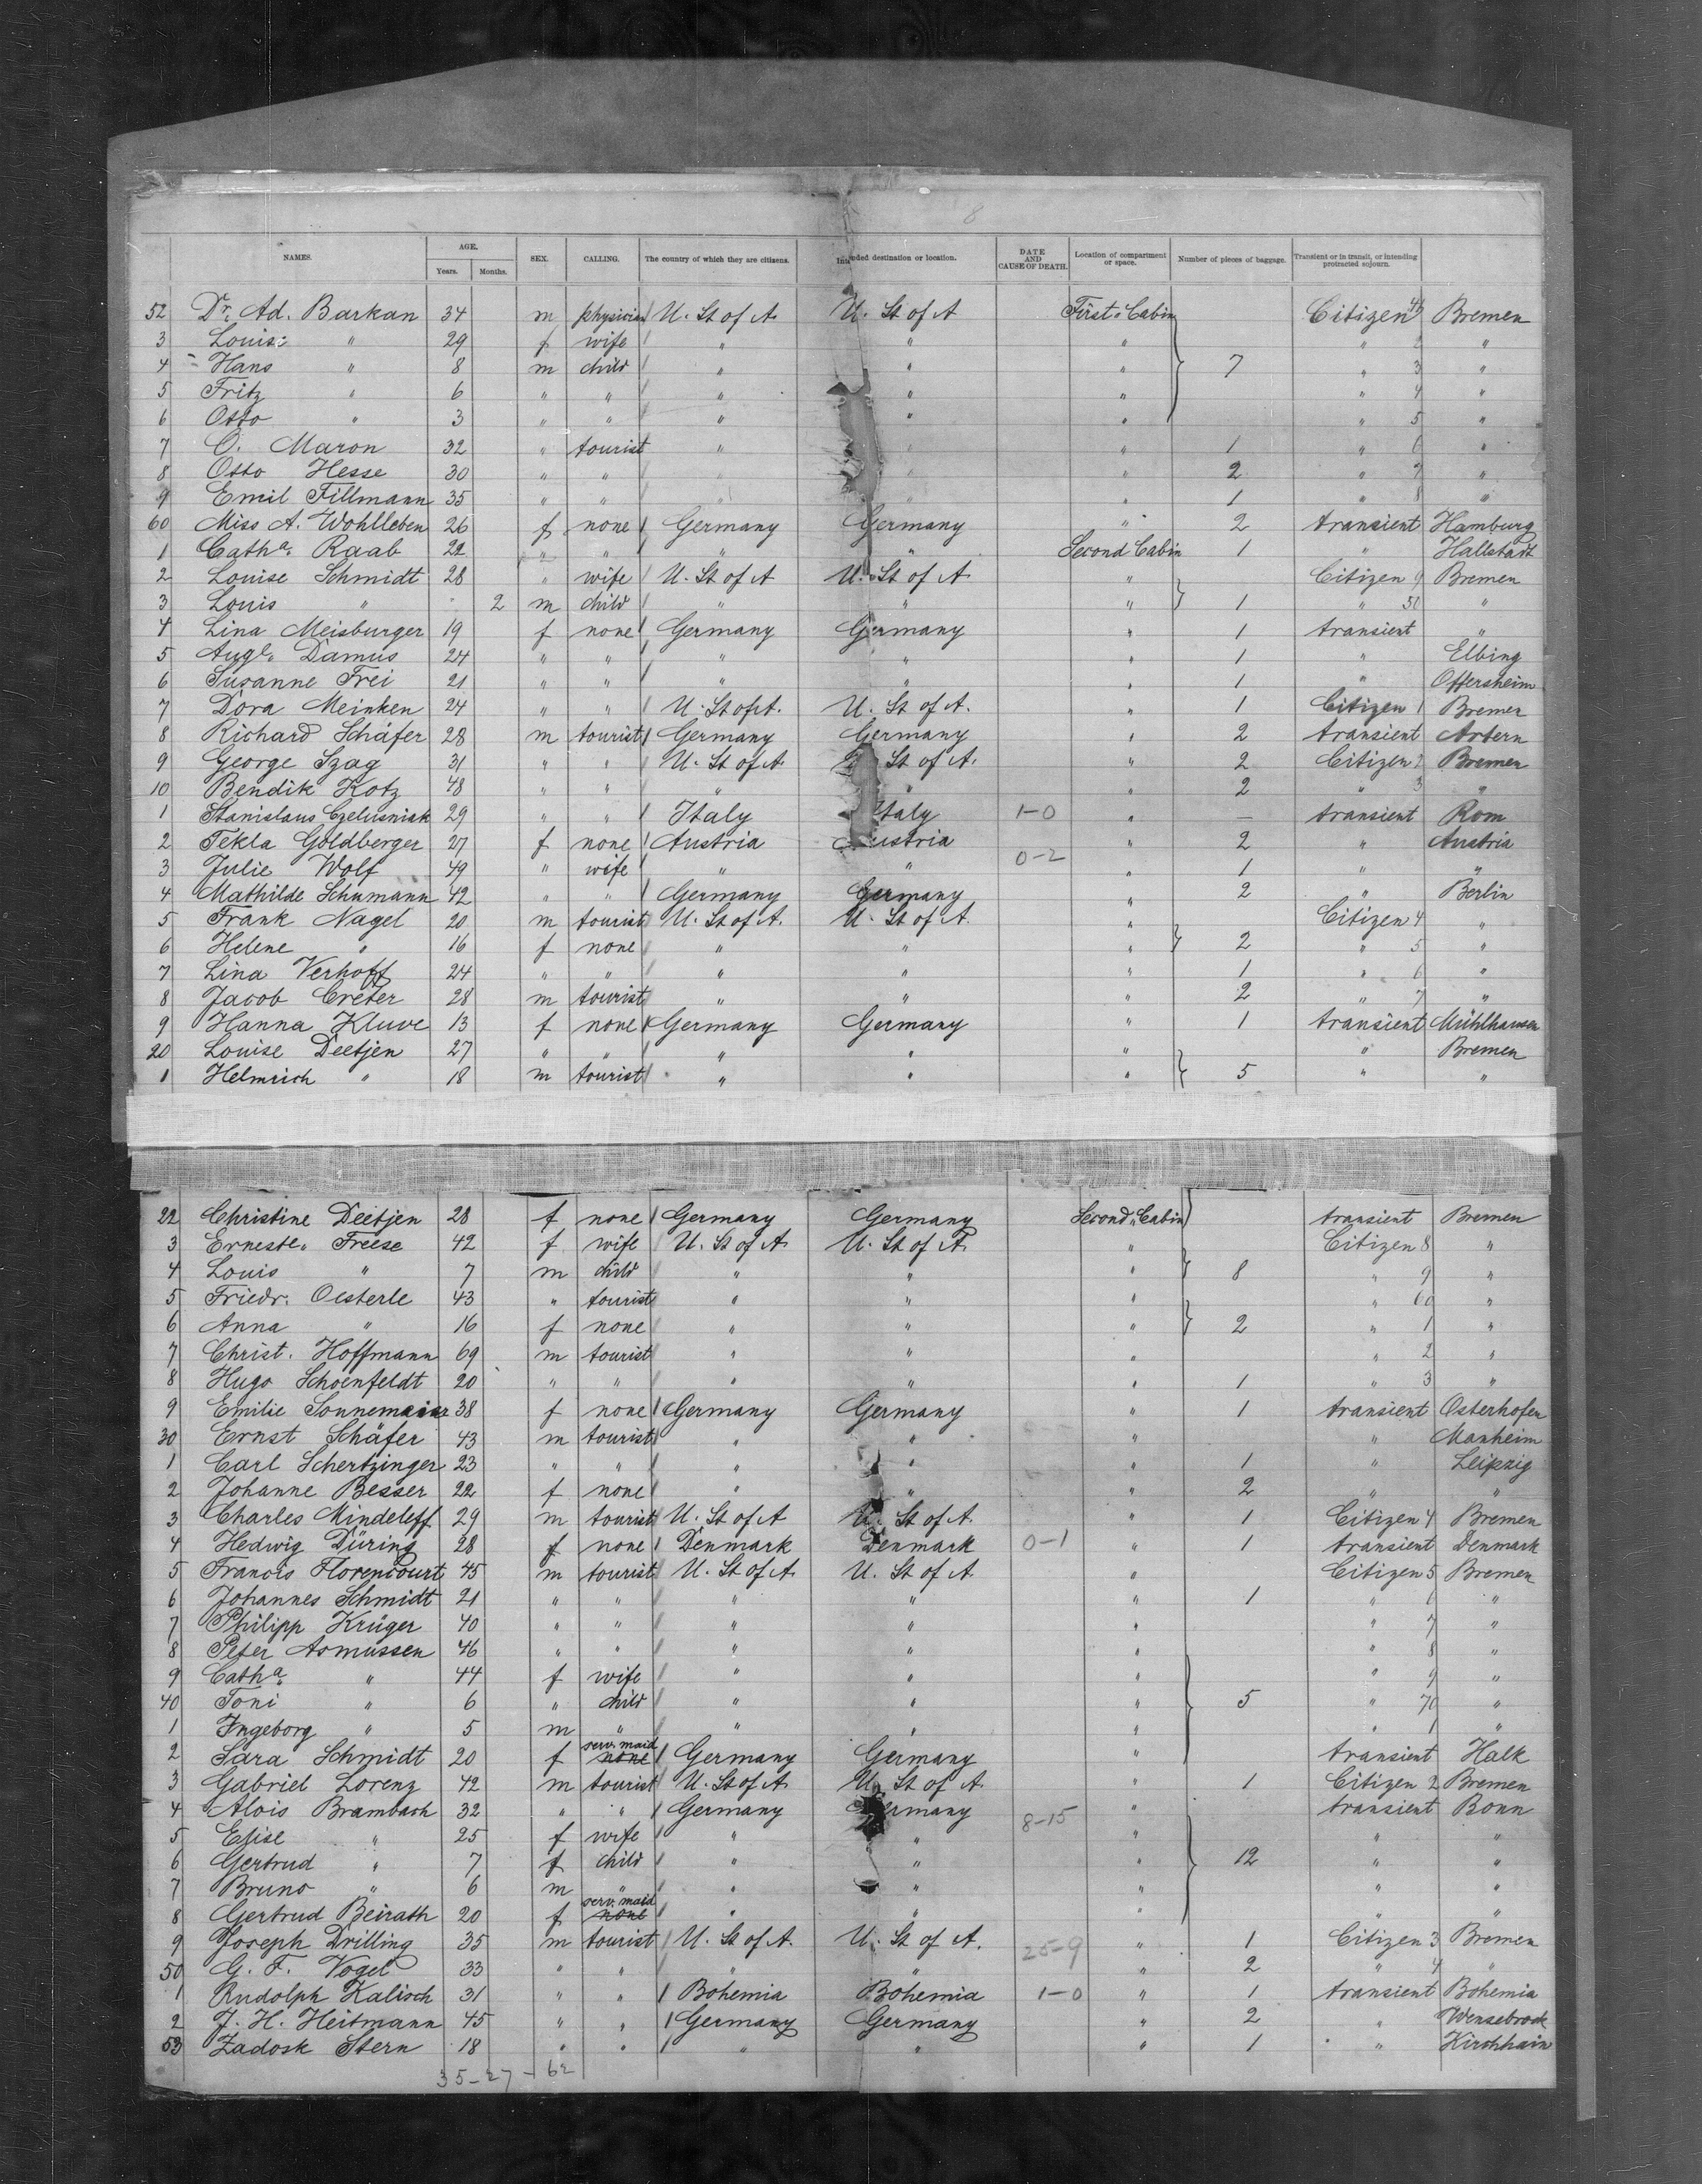 8
NAMES. AGE. Years. Months. SEX. CALLING. The country of which they are citizens. Intended destination or location. DATE AND CAUSE OF DEATH. Location of compartment or space. Number of pieces of baggage. Transient or in transit, or intending protracted sojourn.
52 Dr. Ad. Barkan 34 m physician U. St of A. U. St of A First Cabin Citizen Bremen
3 Louise " 29 f wife " " " " 2 "
4 Hans " 8 m child " " " 7 " 3 "
5 Fritz " 6 " " " " " " 4 "
6 Otto " 3 " " " " " " 5 "
7 O. Maron 32 " tourist " " " 1 " 6 "
8 Otto Hesse 30 " " " " " 2 " 7 "
9 Emil Fillmann 35 " " " " " 1 " 8 "
60 Miss A. Wohlleben 26 f none Germany Germany " 2 transient Hamburg
1 Catha. Raab 22 " " " " Second Cabin 1 " Hallstadt
2 Louise Schmidt 28 " wife U. St of A U. St of A " Citizen 9 Bremen
3 Louis " " 2 m child " " " 1 " 50 "
4 Lina Meisburger 19 f none Germany Germany " 1 transient "
5 Augte. Damus 24 " " " " " 1 " Elbing
6 Susanne Frei 21 " " " " " 1 " Offersheim
7 Dora Meinken 24 " " U. St of A. U. St of A. " 1 Citizen 1 Bremen
8 Richard Schäfer 28 m tourist Germany Germany " 2 transient Artern
9 George Szag 31 " " U. St of A. U. St of A. " 2 Citizen 2 Bremen
10 Bendik Kotz 48 " " " " " 2 " 3 "
1 Stanislaus Czelusniak 29 " " Italy Italy 1-0 " — transient Rom
2 Tekla Goldberger 27 f none Austria Austria " 2 " Austria
3 Julie Wolf 49 " wife " " 0-2 " 1 " "
4 Mathilde Schumann 42 " " Germany Germany " 2 " Berlin
5 Frank Nagel 20 m tourist U. St of A. U. St of A. " Citizen 4 "
6 Helene " 16 f none " " " 2 " 5 "
7 Lina Verhoff 24 " " " " " 1 " 6 "
8 Jacob Creter 28 m tourist " " " 2 " 7 "
9 Hanna Kluve 13 f none Germany Germany " 1 transient Mühlhausen
20 Louise Deetjen 27 " " " " " " Bremen
1 Helmrich " 18 m tourist " " " 5 " "
22 Christine Deetjen 28 f none Germany Germany Second Cabin transient Bremen
3 Erneste. Freese 42 f wife U. St of A. U. St of A. " Citizen 8 "
4 Louis " 7 m child " " " 8 " 9 "
5 Friedr. Oesterle 43 " tourist " " " " 60 "
6 Anna " 16 f none " " " 2 " 1 "
7 Christ. Hoffmann 69 m tourist " " " " 2 "
8 Hugo Schoenfeldt 20 " " " " " 1 " 3 "
9 Emilie 38 f none Germany Germany " 1 transient Osterhofen
30 Ernst Schäfer 43 m tourist " " " " Manheim
1 Carl Schertzinger 23 " " " " " 1 " Leipzig
2 Johanne Besser 22 f none " " " 2 " "
3 Charles Mindeleff 29 m tourist U. St of A U. St of A. " 1 Citizen 4 Bremen
4 Hedwig Düring 28 f none Denmark Denmark 0-1 " 1 transient Denmark
5 Francis Florencourt 45 m tourist U. St of A. U. St of A " Citizen 5 Bremen
6 Johannes Schmidt 21 " " " " " 1 " 6 "
7 Philipp Krüger 40 " " " " " " 7 "
8 Peter Asmussen 46 " " " " " " 8 "
9 Catha. " 44 f wife " " " " 9 "
40 Toni " 6 " child " " " 5 " 70 "
1 Ingeborg " 5 m " " " " " 1 "
2 Sara Schmidt 20 f serv. maid none Germany Germany " transient Halk
3 Gabriel Lorenz 42 m tourist U. St of A. U. St of A. " 1 Citizen 2 Bremen
4 Alois Brambach 32 " " Germany Germany 8-15 " transient Bonn
5 Elise " 25 f wife " " " " "
6 Gertrud " 7 f child " " " 12 " "
7 Bruno " 6 m " " " " " "
8 Gertrud Beirath 20 f serv. maid none " " " " "
9 Joseph Drilling 35 m tourist U. St of A. U. St of A. 25-9 " 1 Citizen 3 Bremen
50 G. F. Vogel 33 " " " " " 2 " 4 "
1 Rudolph Kalisch 31 " " Bohemia Bohemia 1-0 " 1 transient Bohemia
2 J. H. Heitmann 45 " " Germany Germany " 2 " Wensebrock
53 Zadosk Stern 18 " " " " " 1 " Kirchhain
35-27-62